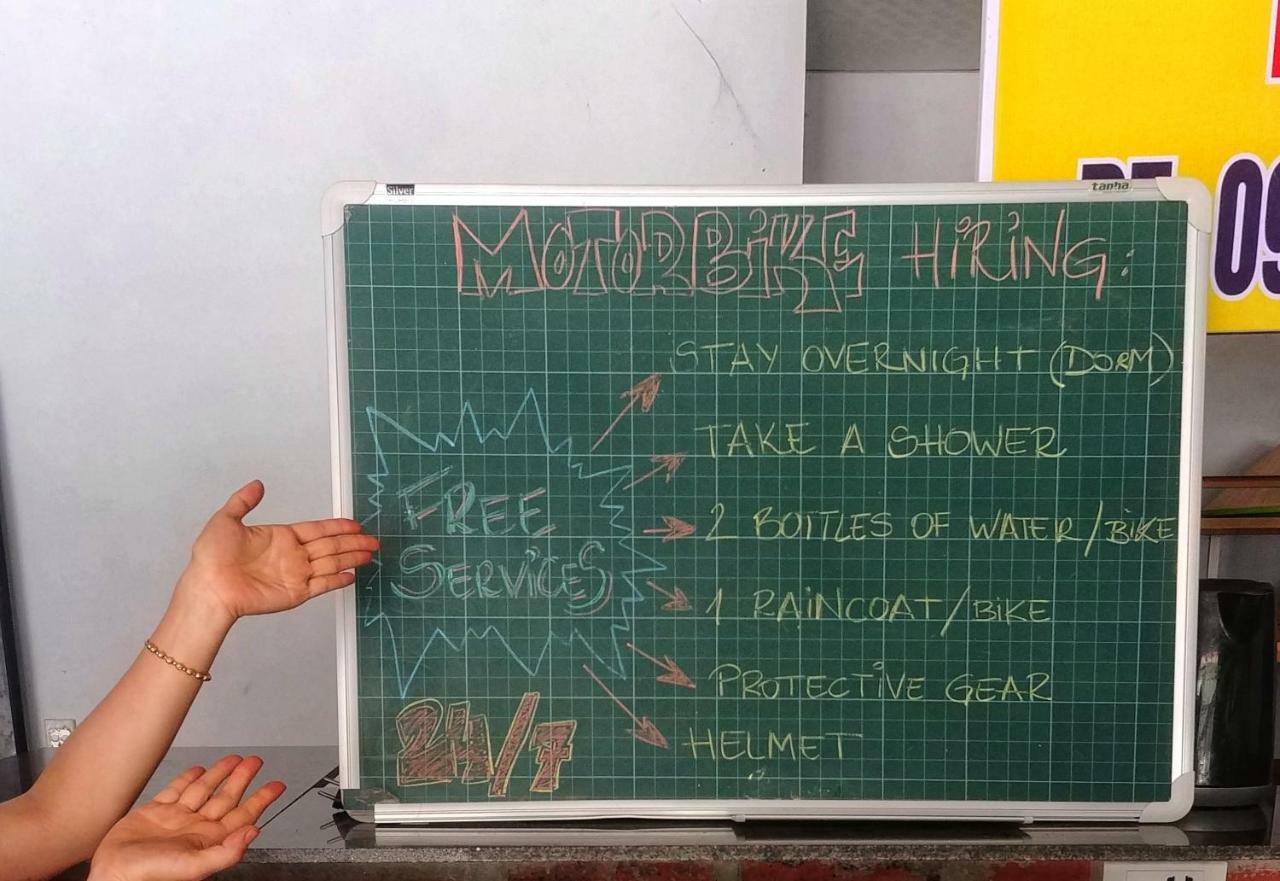 Silver
tanha
MOTORBIKE HIRING:
STAY OVERNIGHT (DORM)
TAKE A SHOWER
2 BOTTLES OF WATER/BIKE
1 RAINCOAT/BIKE
PROTECTIVE GEAR
HELMET
FREE
SERVICES
24/7
09